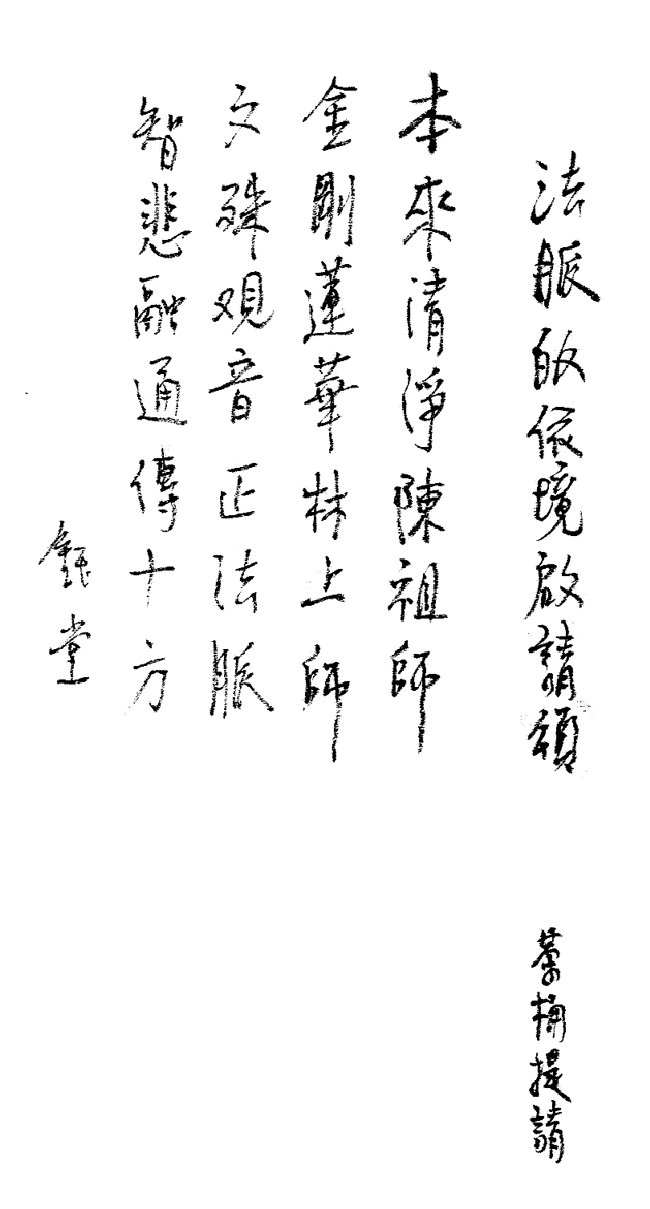 法脈皈依境啟請頌
華桶提請
本來清淨陳祖師
金剛蓮華林上師
文殊观音正法脈
智悲融通傳十方
鈺堂